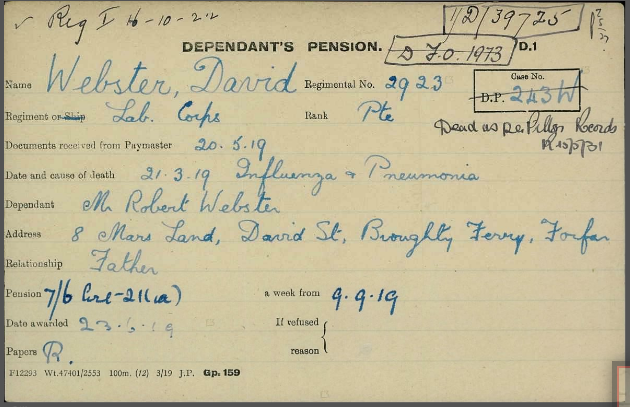 ✓ Reg I 16-10-22
1/D/39725
DEPENDANT'S PENSION.
D.F.O. 1973
D.1
Name Webster, David Regimental No. 2923
Case No.
D.P. 243W
Regiment or Ship Lab. Corps Rank Pte
Dead as per Records
Documents received from Paymaster 20.5.19
Date and cause of death 21.3.19 Influenza & Pneumonia
Dependant Mr Robert Webster
Address 8 Mars Land, David St, Broughty Ferry, Forfar
Relationship Father
Pension 7/6 a week from 9.9.19
Date awarded 23.6.19 If refused
reason
Papers R.
F12293 Wt.47401/2553 100m. (12) 3/19 J.P. Gp. 159